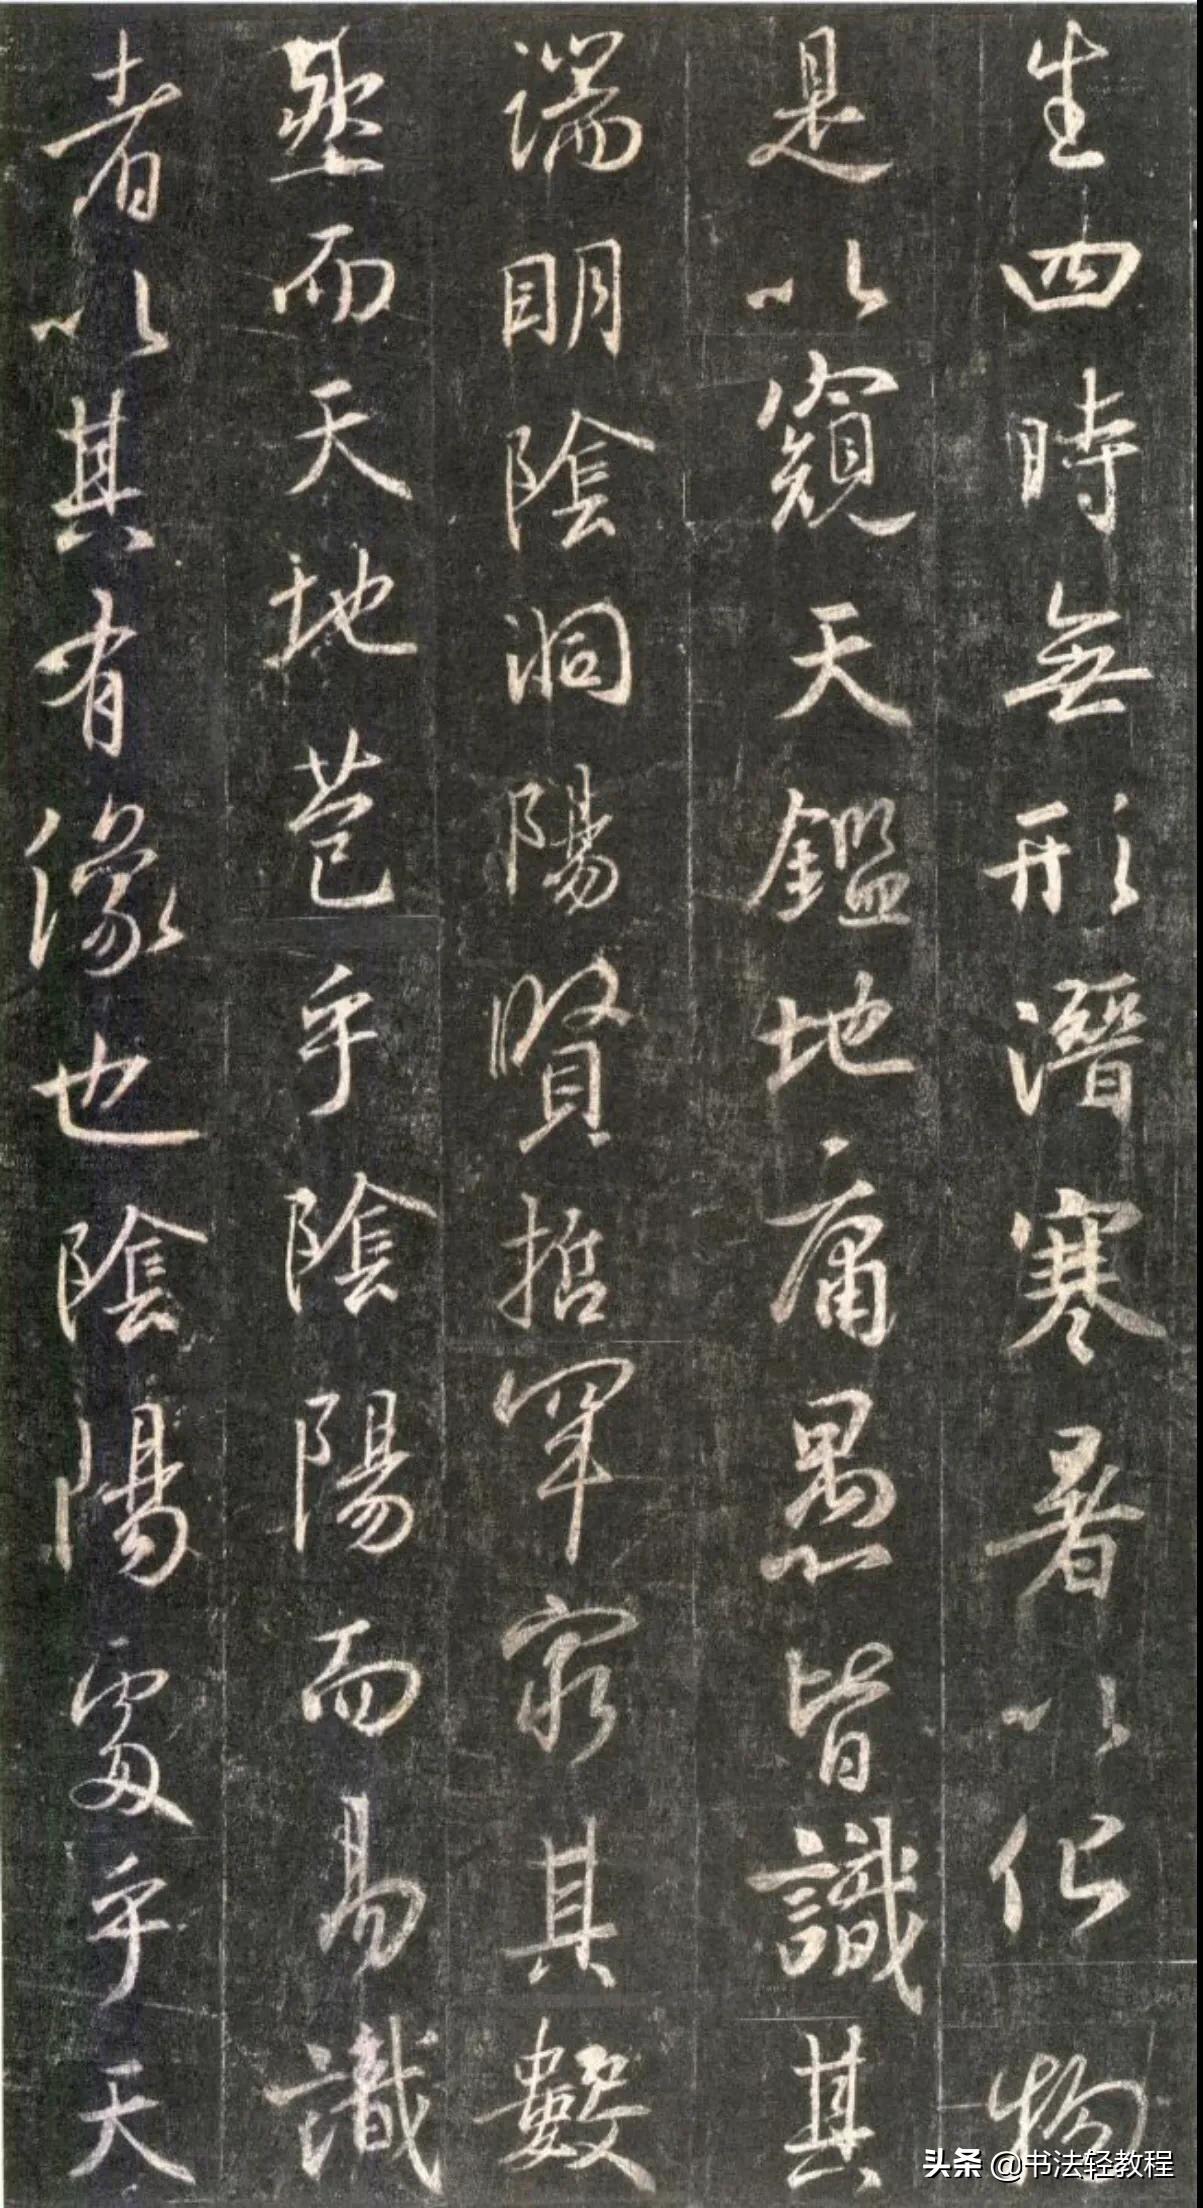 生四時無形潛寒暑以化物
是以窺天鑑地庸愚皆識其
端明陰洞陽賢哲罕窮其數
然而天地苞乎陰陽而易識
者以其有像也陰陽處乎天
头条 @书法轻教程